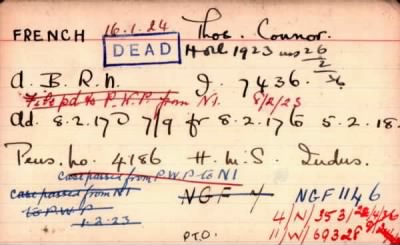 FRENCH 16.1.24 Thos. Connor.
DEAD H.o.l. 1923 26
2
36
A. B. R.N. J. 7436.
File pd to P.W.P. from N1. 8/2/23
Ad. 8.2.17 7/9 fr 8.2.17 to 5.2.18.
Pens. no. 4186 H.M.S. Indus.
Case passed from P.W.P to N1
Case passed from N1 NGF 4 NGF 1146
to P.W.P 4/N/3531
1.2.23 11/W/69328
P.T.O.